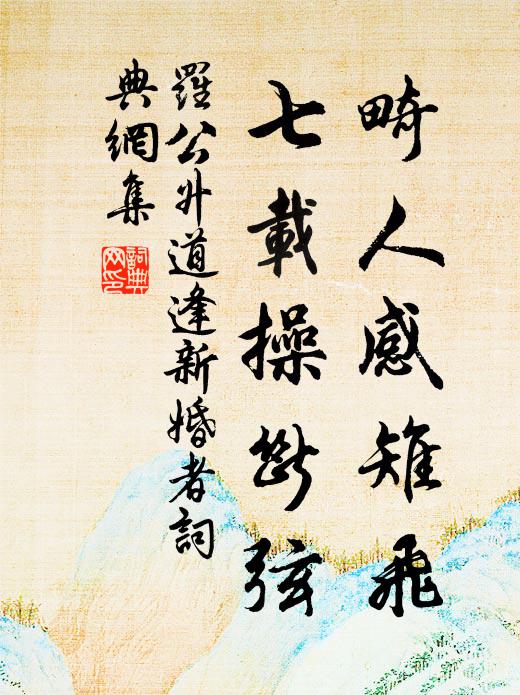 畸人感雉飛
七載操斷弦
羅公升道逢新婚者詞
典網集
詞典网印